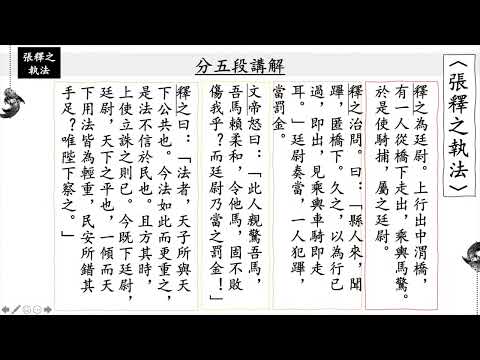 張釋之
執法
分五段講解
〈張釋之執法〉
釋之為廷尉。上行出中渭橋,
有一人從橋下走出,乘輿馬驚。
於是使騎捕,屬之廷尉。
釋之治問。曰:「縣人來,聞
蹕,匿橋下。久之,以為行已
過,即出,見乘輿車騎即走
耳。」廷尉奏當,一人犯蹕,
當罰金。
文帝怒曰:「此人親驚吾馬,
吾馬賴柔和,令他馬,固不敗
傷我乎?而廷尉乃當之罰金!」
釋之曰:「法者,天子所與天
下公共也。今法如此而更重之,
是法不信於民也。且方其時,
上使立誅之則已。今既下廷尉,
廷尉,天下之平也,一傾而天
下用法皆為輕重,民安所錯其
手足?唯陛下察之。」